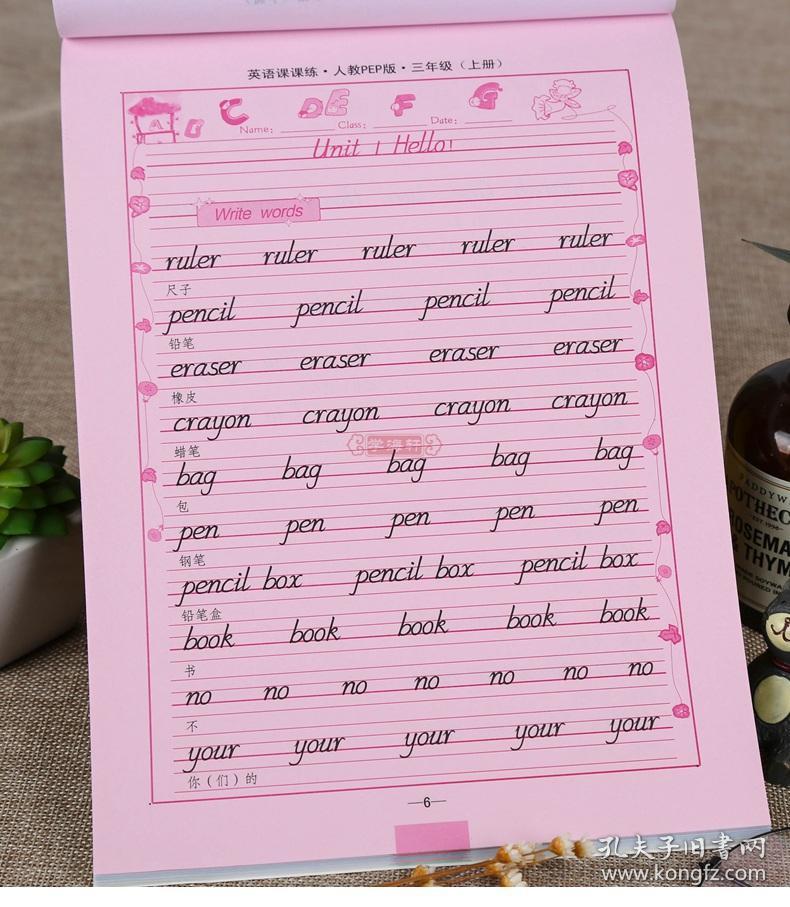 英语课课练·人教PEP版·三年级（上册）
A B C D E F G
Name: Class: Date:
Unit 1 Hello!
Write words
ruler ruler ruler ruler ruler
尺子
pencil pencil pencil pencil
铅笔
eraser eraser eraser eraser
橡皮
crayon crayon crayon crayon
蜡笔
学海轩
bag bag bag bag bag
包
pen pen pen pen pen
钢笔
pencil box pencil box pencil box
铅笔盒
book book book book book
书
no no no no no no no
不
your your your your your
你（们）的
—6—
孔夫子旧书网
www.kongfz.com